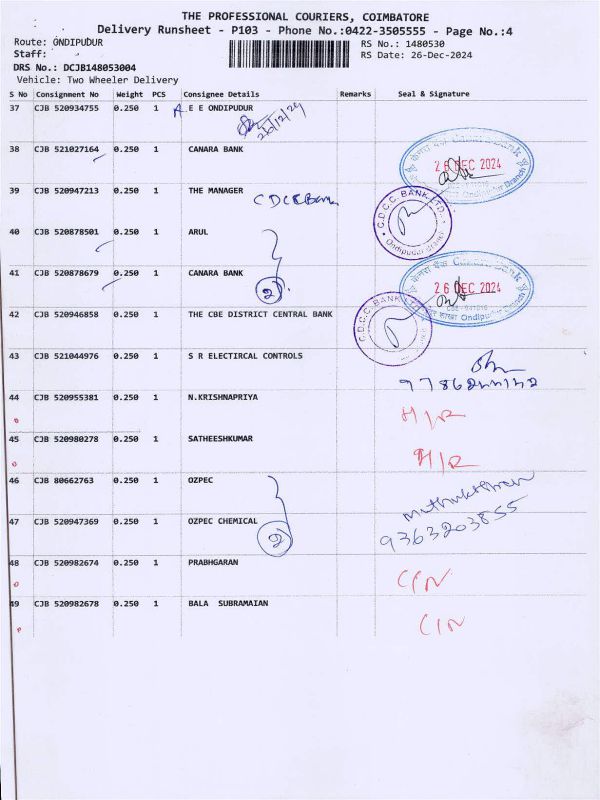 THE PROFESSIONAL COURIERS, COIMBATORE
Delivery Runsheet - P103 - Phone No.:0422-3505555 - Page No.:4
Route: ONDIPUDUR RS No.: 1480530
Staff: RS Date: 26-Dec-2024
DRS No.: DCJB148053004
Vehicle: Two Wheeler Delivery
S No Consignment No Weight PCS Consignee Details Remarks Seal & Signature
37 CJB 520934755 0.250 1 A.E E ONDIPUDUR
26/12/24
38 CJB 521027164 0.250 1 CANARA BANK
केनरा बैंक Canara Bank
26 DEC 2024
Ondipudur Branch
39 CJB 520947213 0.250 1 THE MANAGER
CDCC Bank
C.D.C.C. BANK LTD.,
Ondipudur Branch
40 CJB 520878501 0.250 1 ARUL
41 CJB 520878679 0.250 1 CANARA BANK
2
केनरा बैंक Canara Bank
26 DEC 2024
Ondipudur Branch
42 CJB 520946858 0.250 1 THE CBE DISTRICT CENTRAL BANK
C.D.C.C. BANK LTD.,
Ondipudur Branch
43 CJB 521044976 0.250 1 S R ELECTIRCAL CONTROLS
44 CJB 520955381 0.250 1 N.KRISHNAPRIYA
H/R
45 CJB 520980278 0.250 1 SATHEESHKUMAR
H/R
46 CJB 80662763 0.250 1 OZPEC
47 CJB 520947369 0.250 1 OZPEC CHEMICAL
2
9363203855
48 CJB 520982674 0.250 1 PRABHGARAN
C/N
49 CJB 520982678 0.250 1 BALA SUBRAMAIAN
C/N